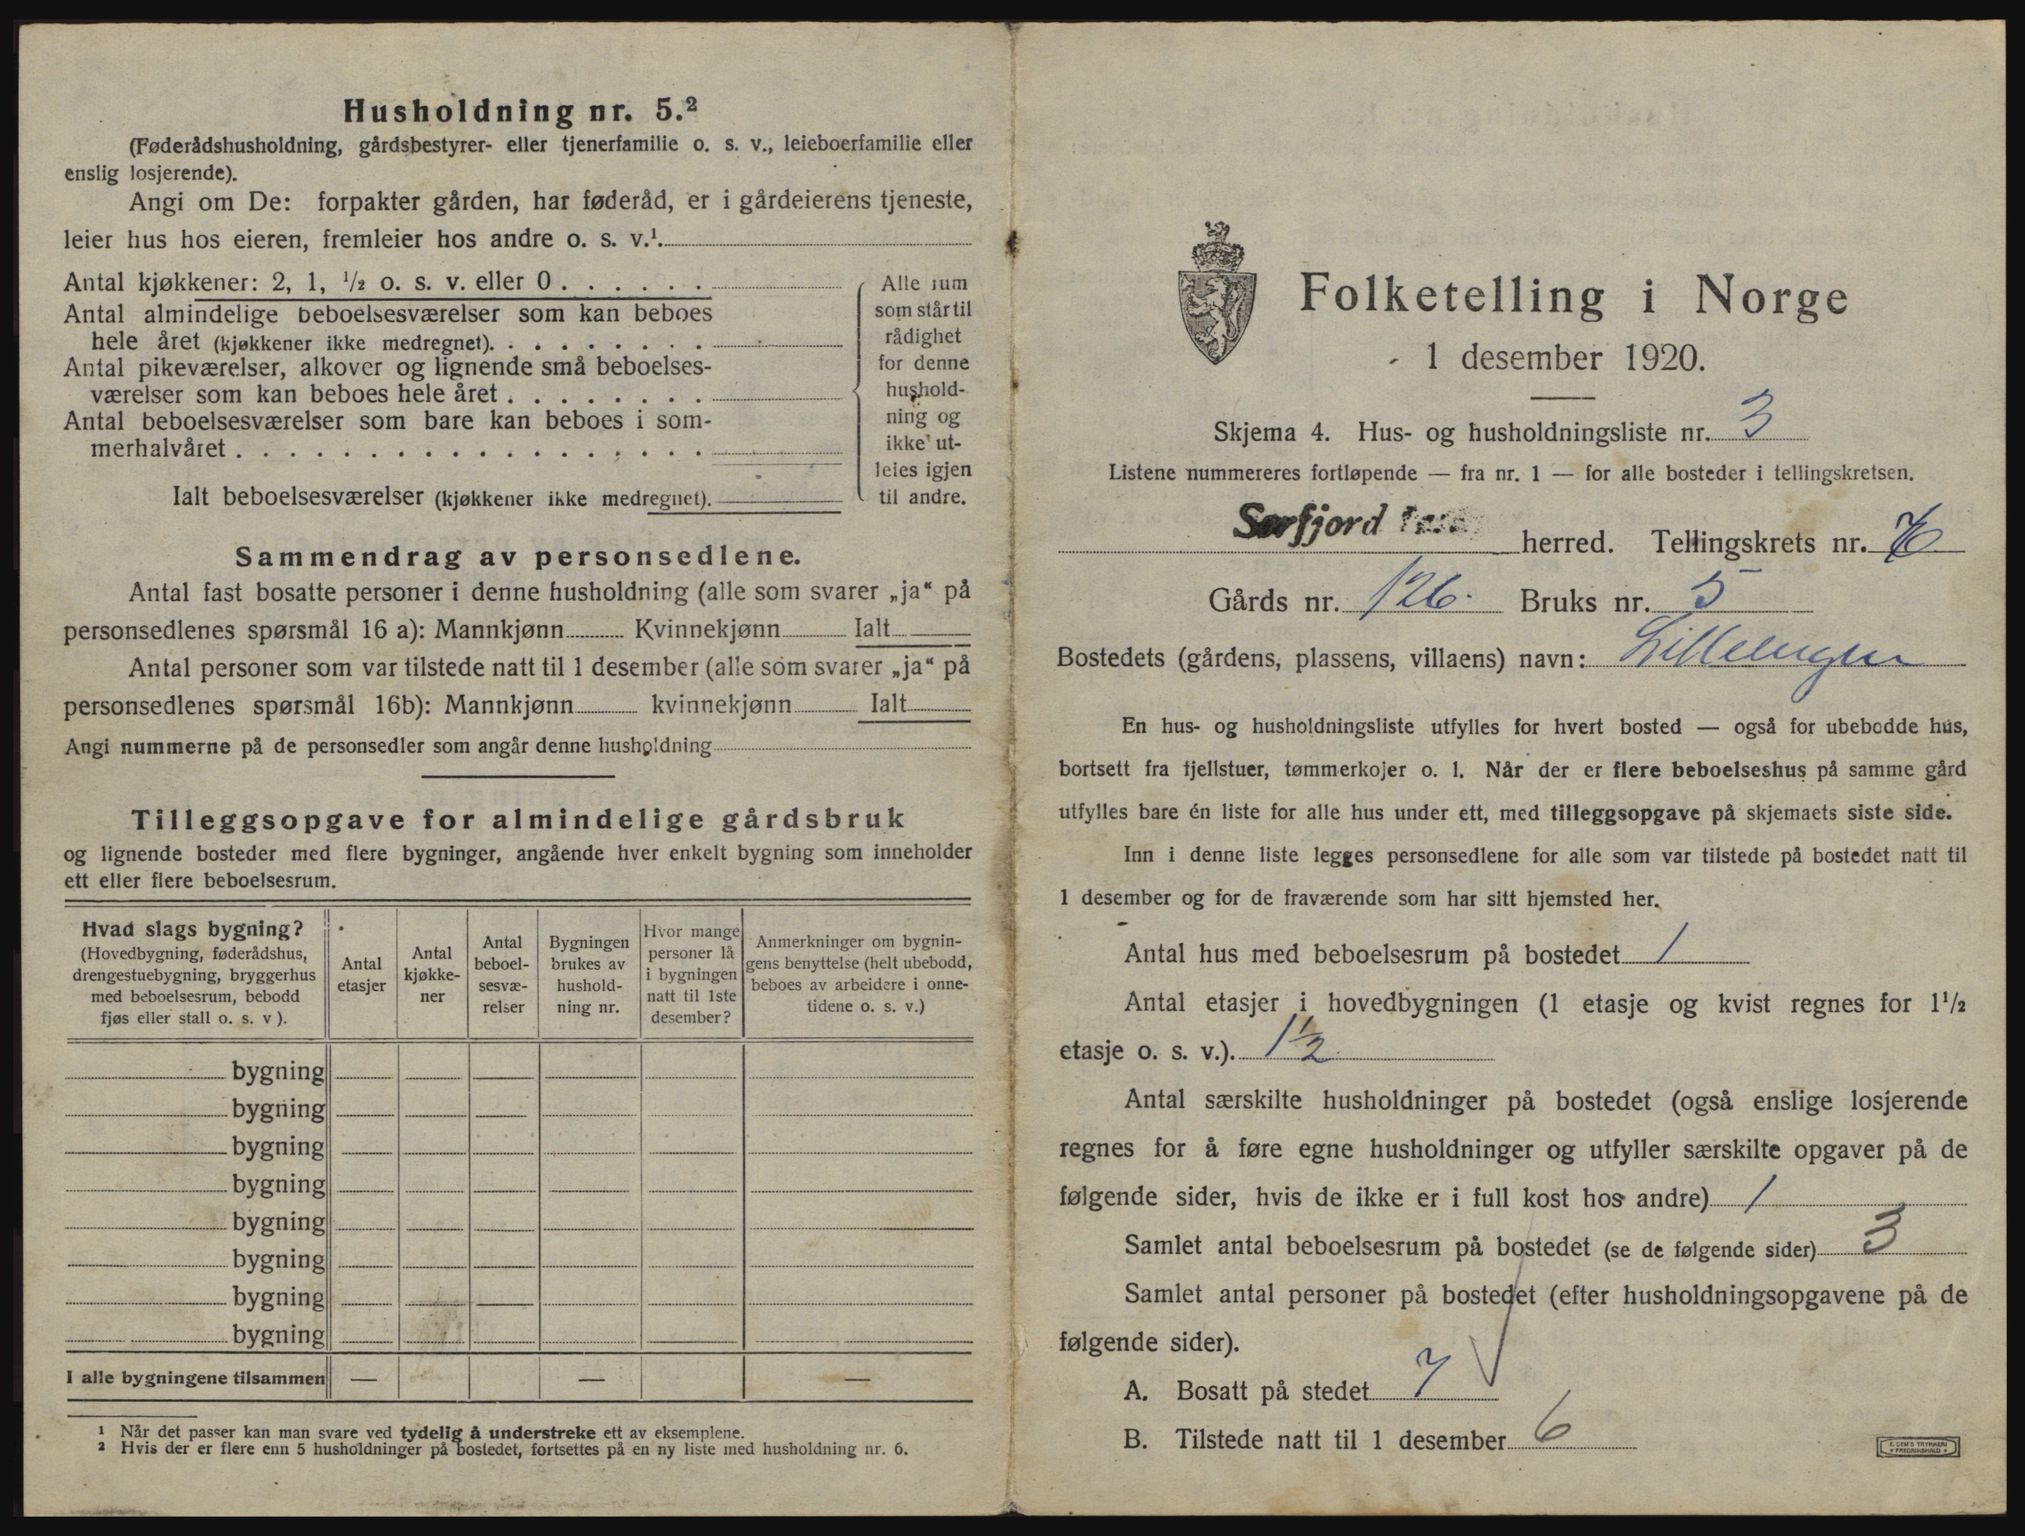 Husholdning nr. 5.²
(Føderådshusholdning, gårdsbestyrer- eller tjenerfamilie o. s. v., leieboerfamilie eller
enslig losjerende).
Angi om De: forpakter gården, har føderåd, er i gårdeierens tjeneste,
leier hus hos eieren, fremleier hos andre o. s. v.¹
Antal kjøkkener: 2, 1, ½ o. s. v. eller 0 . . . . . .
Antal almindelige beboelsesværelser som kan beboes
hele året (kjøkkener ikke medregnet). . . . . . . . .
Antal pikeværelser, alkover og lignende små beboelses-
værelser som kan beboes hele året . . . . . . . .
Antal beboelsesværelser som bare kan beboes i som-
merhalvåret . . . . . . . . . . . . . . . . . .
Ialt beboelsesværelser (kjøkkener ikke medregnet).
Alle rum
som står til
rådighet
for denne
hushold-
ning og
ikke ut-
leies igjen
til andre.
Sammendrag av personsedlene.
Antal fast bosatte personer i denne husholdning (alle som svarer „ja“ på
personsedlenes spørsmål 16 a): Mannkjønn Kvinnekjønn Ialt
Antal personer som var tilstede natt til 1 desember (alle som svarer „ja“ på
personsedlenes spørsmål 16b): Mannkjønn kvinnekjønn Ialt
Angi nummerne på de personsedler som angår denne husholdning
Tilleggsopgave for almindelige gårdsbruk
og lignende bosteder med flere bygninger, angående hver enkelt bygning som inneholder
ett eller flere beboelsesrum.
Hvad slags bygning?
(Hovedbygning, føderådshus,
drengestuebygning, bryggerhus
med beboelsesrum, bebodd
fjøs eller stall o. s. v ).
Antal
etasjer
Antal
kjøkke-
ner
Antal
beboel-
sesvæ-
relser
Bygningen
brukes av
hushold-
ning nr.
Hvor mange
personer lå
i bygningen
natt til 1ste
desember?
Anmerkninger om bygnin-
gens benyttelse (helt ubebodd,
beboes av arbeidere i onne-
tidene o. s. v.)
bygning
bygning
bygning
bygning
bygning
bygning
bygning
bygning
I alle bygningene tilsammen — — —
¹ Når det passer kan man svare ved tydelig å understreke ett av eksemplene.
² Hvis der er flere enn 5 husholdninger på bostedet, fortsettes på en ny liste med husholdning nr. 6.
Folketelling i Norge
1 desember 1920.
Skjema 4. Hus- og husholdningsliste nr. 3
Listene nummereres fortløpende — fra nr. 1 — for alle bosteder i tellingskretsen.
Sørfjord herred. Tellingskrets nr.
Gårds nr. 126. Bruks nr. 5
Bostedets (gårdens, plassens, villaens) navn:
En hus- og husholdningsliste utfylles for hvert bosted — også for ubebodde hus,
bortsett fra fjellstuer, tømmerkojer o. l. Når der er flere beboelseshus på samme gård
utfylles bare én liste for alle hus under ett, med tilleggsopgave på skjemaets siste side.
Inn i denne liste legges personsedlene for alle som var tilstede på bostedet natt til
1 desember og for de fraværende som har sitt hjemsted her.
Antal hus med beboelsesrum på bostedet 1
Antal etasjer i hovedbygningen (1 etasje og kvist regnes for 1½
etasje o. s. v.). 1½
Antal særskilte husholdninger på bostedet (også enslige losjerende
regnes for å føre egne husholdninger og utfyller særskilte opgaver på de
følgende sider, hvis de ikke er i full kost hos andre) 1
Samlet antal beboelsesrum på bostedet (se de følgende sider) 3
Samlet antal personer på bostedet (efter husholdningsopgavene på de
følgende sider).
A. Bosatt på stedet 7
B. Tilstede natt til 1 desember 6